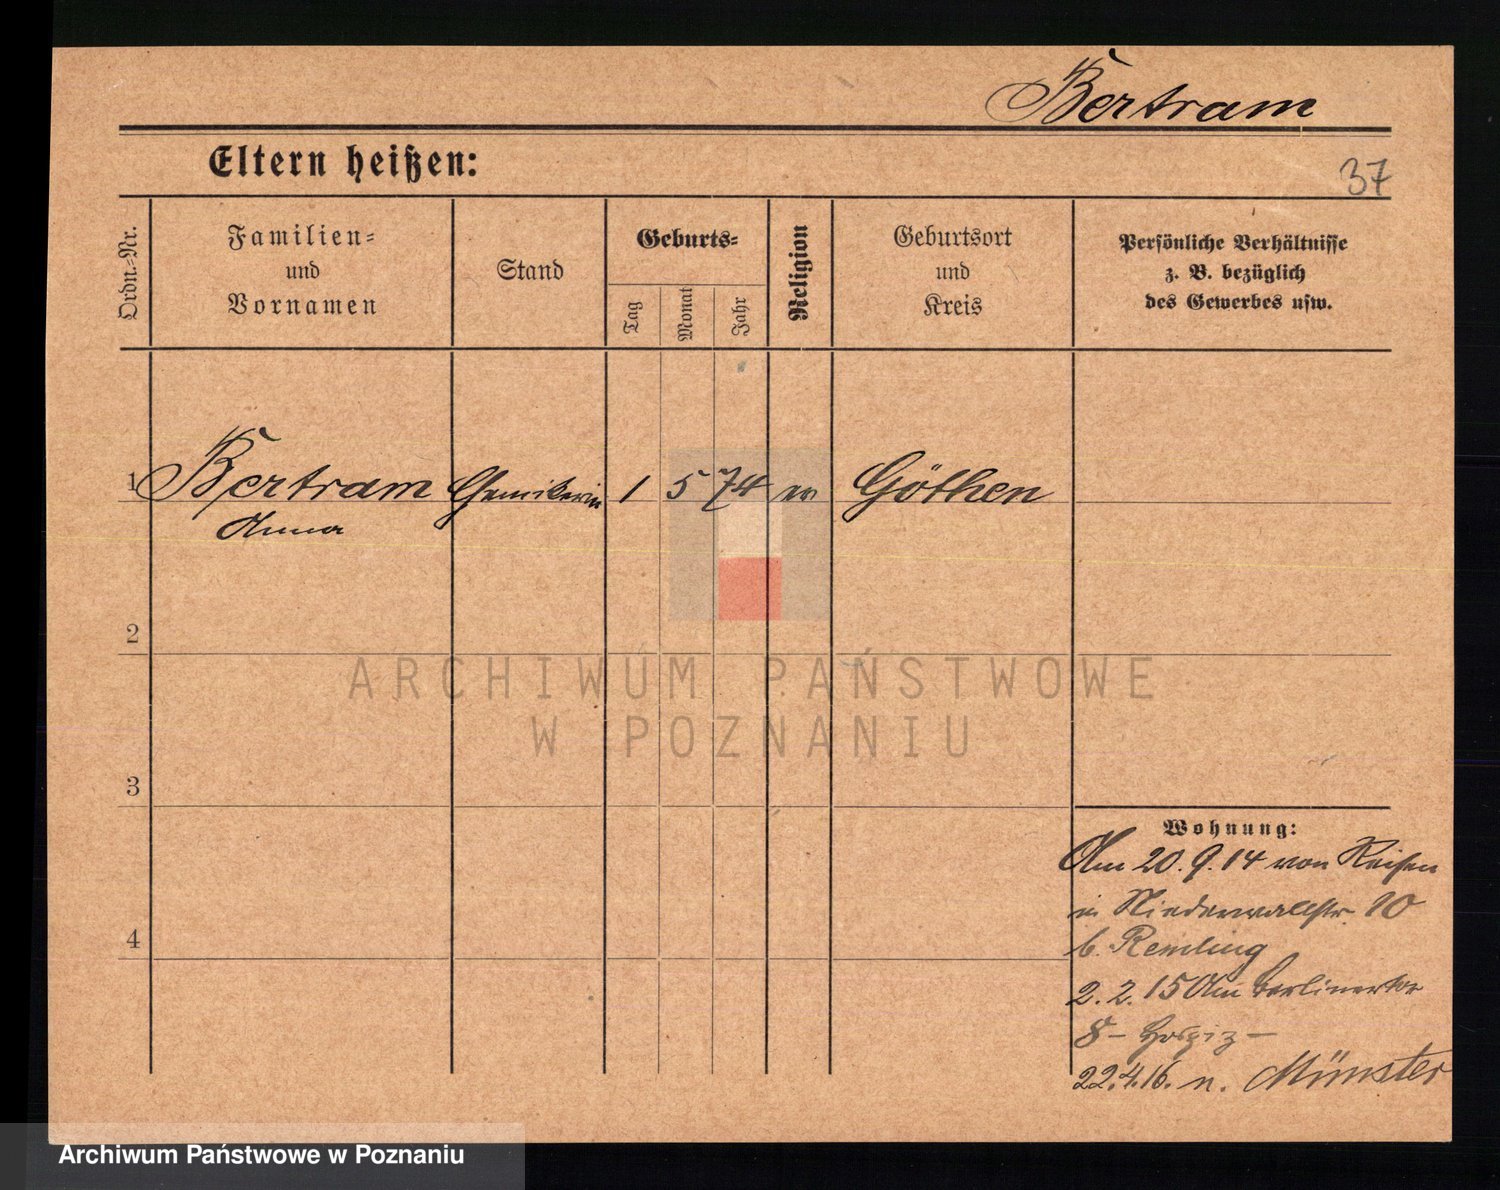 Bertram
Eltern heißen:
37
Ordn.=Nr.
Familien=
und
Vornamen
Stand
Geburts=
Tag
Monat
Jahr
Religion
Geburtsort
und
Kreis
Persönliche Verhältnisse
z. B. bezüglich
des Gewerbes usw.
1 Bertram Chemikerin 1 5 74 ev Göthen
Anna
2
3
4
Wohnung:
Am 20.9.14 von Reisen
in Niederwallstr. 10
b. Remling
2.2.15 Am Berlinertor
8 - Hospiz -
22.4.16. n. Münster
ARCHIWUM PAŃSTWOWE
W POZNANIU
Archiwum Państwowe w Poznaniu